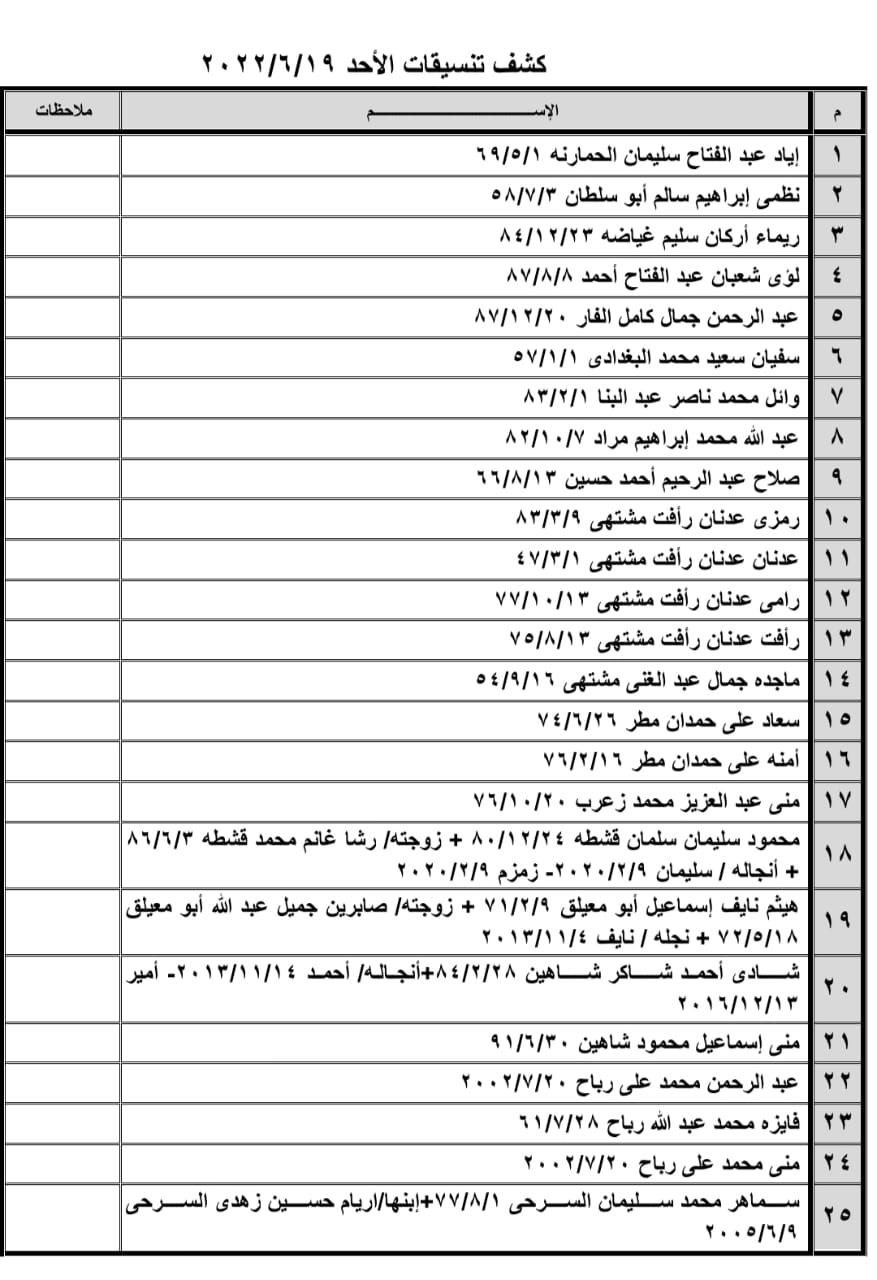 كشف تنسيقات الأحد ٢٠٢٢/٦/١٩
م الإســـــــــم ملاحظات
١ إياد عبد الفتاح سليمان الحمارنه ٦٩/٥/١
٢ نظمى إبراهيم سالم أبو سلطان ٥٨/٧/٣
٣ ريماء أركان سليم غياضه ٨٤/١٢/٢٣
٤ لؤى شعبان عبد الفتاح أحمد ٨٧/٨/٨
٥ عبد الرحمن جمال كامل الفار ٨٧/١٢/٢٠
٦ سفيان سعيد محمد البغدادى ٥٧/١/١
٧ وائل محمد ناصر عبد البنا ٨٣/٢/١
٨ عبد الله محمد إبراهيم مراد ٨٢/١٠/٧
٩ صلاح عبد الرحيم أحمد حسين ٦٦/٨/١٣
١٠ رمزى عدنان رأفت مشتهى ٨٣/٣/٩
١١ عدنان عدنان رأفت مشتهى ٤٧/٣/١
١٢ رامى عدنان رأفت مشتهى ٧٧/١٠/١٣
١٣ رأفت عدنان رأفت مشتهى ٧٥/٨/١٣
١٤ ماجده جمال عبد الغنى مشتهى ٥٤/٩/١٦
١٥ سعاد على حمدان مطر ٧٤/٦/٢٦
١٦ أمنه على حمدان مطر ٧٦/٢/١٦
١٧ منى عبد العزيز محمد زعرب ٧٦/١٠/٢٠
١٨ محمود سليمان سلمان قشطه ٨٠/١٢/٢٤ + زوجته/ رشا غانم محمد قشطه ٨٦/٦/٣
+ أنجاله / سليمان ٢٠٢٠/٢/٩- زمزم ٢٠٢٠/٢/٩
١٩ هيثم نايف إسماعيل أبو معيلق ٧١/٢/٩ + زوجته/ صابرين جميل عبد الله أبو معيلق
٧٢/٥/١٨ + نجله / نايف ٢٠١٣/١١/٤
٢٠ شـــادى أحمـد شـــاكر شـــاهين ٨٤/٢/٢٨+أنجـالـه/ أحمـد ٢٠١٣/١١/١٤- أمير
٢٠١٦/١٢/١٣
٢١ منى إسماعيل محمود شاهين ٩١/٦/٣٠
٢٢ عبد الرحمن محمد على رباح ٢٠٠٢/٧/٢٠
٢٣ فايزه محمد عبد الله رباح ٦١/٧/٢٨
٢٤ منى محمد على رباح ٢٠٠٢/٧/٢٠
٢٥ ســماهر محمد ســليمان الســرحى ٧٧/٨/١+إبنها/اريام حســين زهدى الســرحى
٢٠٠٥/٦/٩